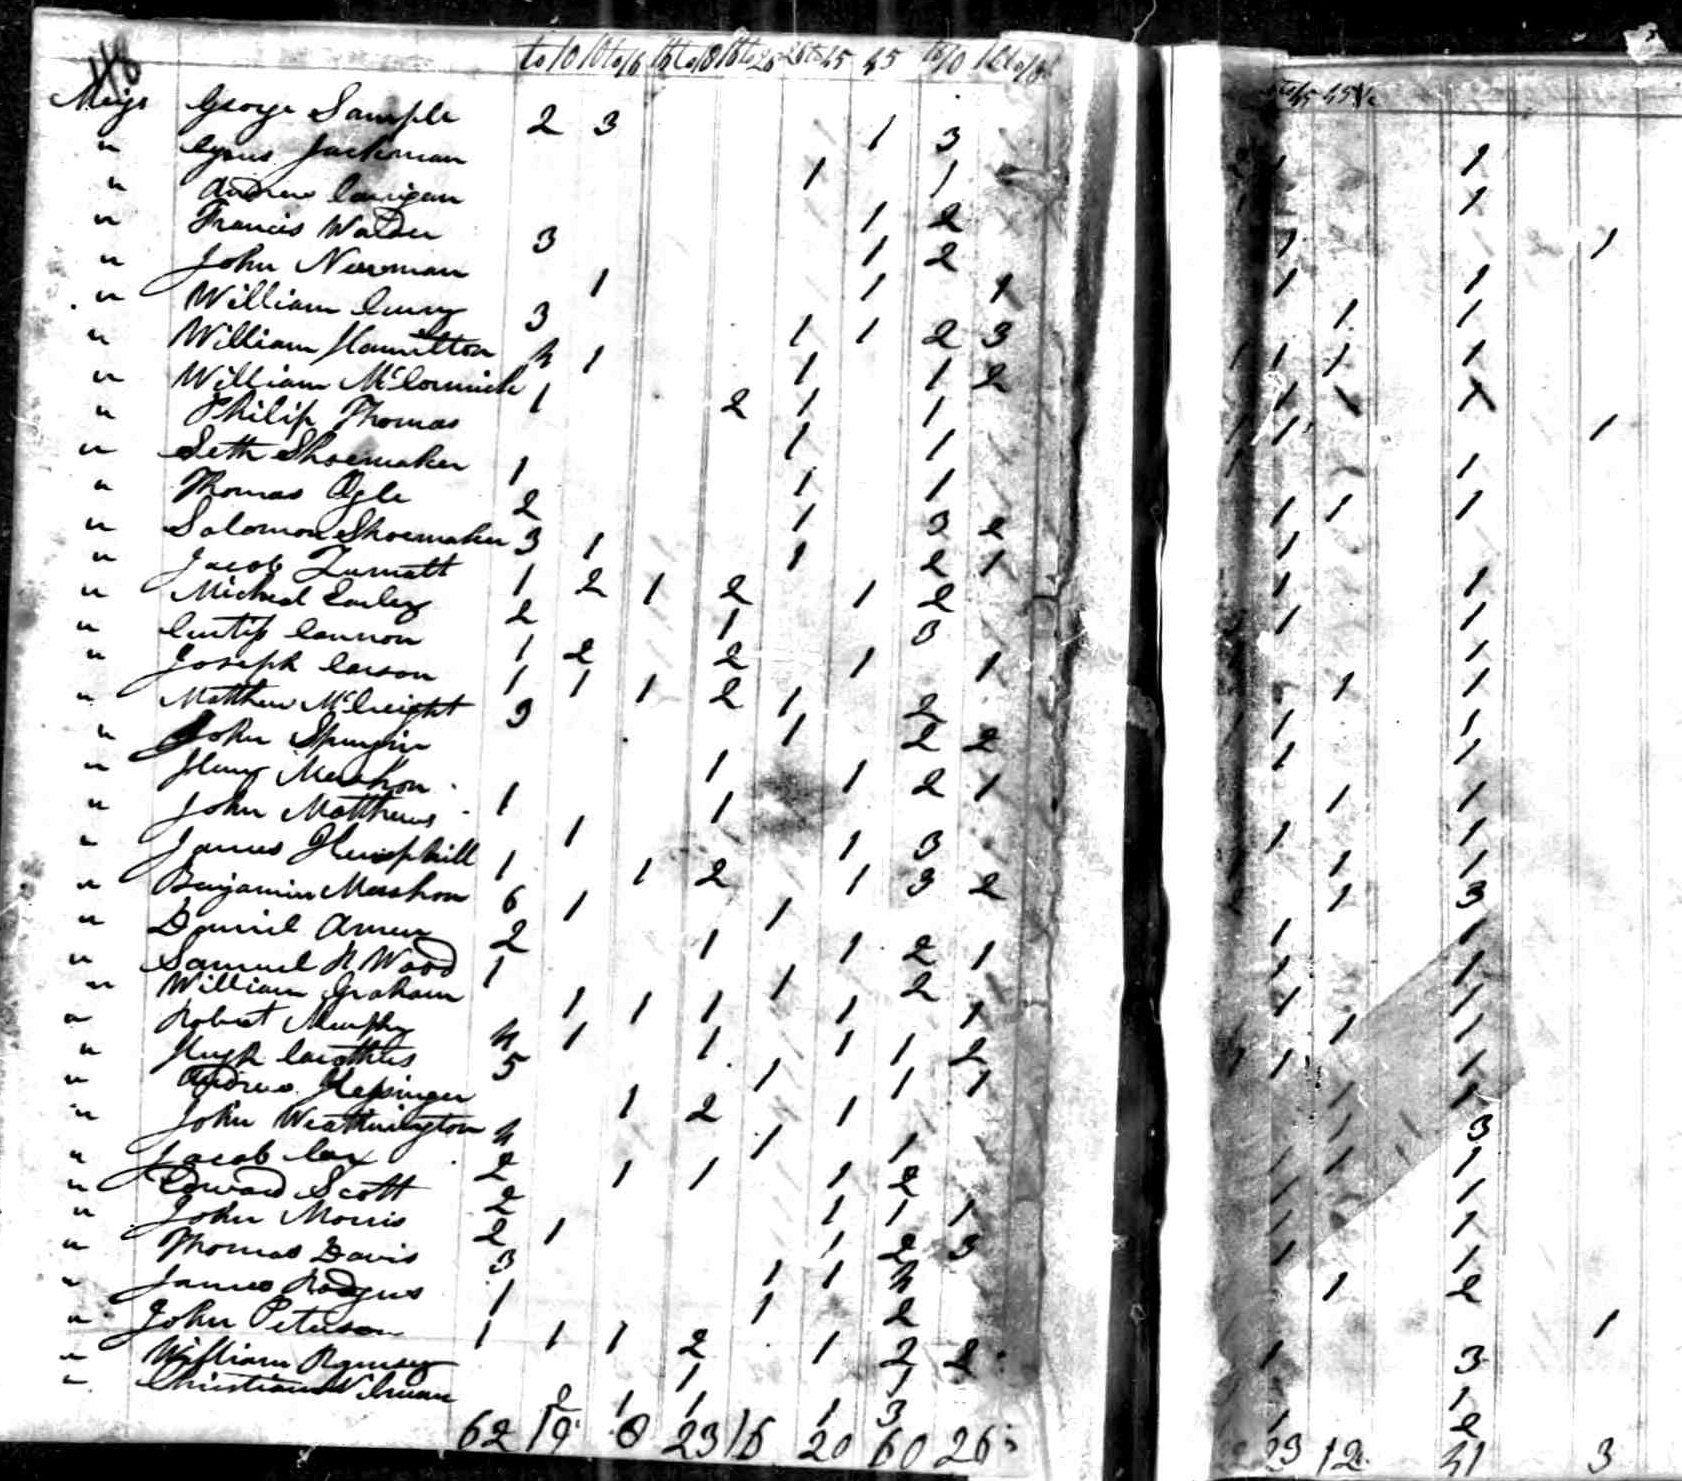 to 10 10 to 16 16 to 18 16 to 26 26 to 45 45 to 10 10 to 16 to 45 45 &c
Meigs George Sample 2 3 1 3
" Cyrus Jackman 1 1 1 1
" Andrew Carrigan 1 2 1
" Francis Walden 3 1 2 1 1
" John Newman 1 1 1 1 1
" William Curry 3 1 1 2 3 1 1
" William Hamilton 4 1 1 1 2 1 1 1 1
" William McCormick 1 2 1 1 1
" Philip Thomas 1 1 1 1 1
" Seth Shoemaker 1 1 1 1
" Thomas Ogle 2 1 3 2 1 1 1
" Solomon Shoemaker 3 1 1 2 1 1
" Jacob 1 2 1 2 1 2 1 1
" Michael Earley 2 1 3 1 1
" Curtis Cannon 1 2 2 1 1 1
" Joseph Carson 1 1 1 2 1 2 1 1
" Matthew McCreight 3 1 2 2 1 1
" John Spurgin 1 1 2 1 1 1
" Henry Mershon 1 1 1 1
" John Matthews 1 1 3 1 1
" James Hemphill 1 1 2 1 3 2 1 1
" Benjamin Mershon 6 1 1 1 3
" Daniel 2 1 1 2 1 1 1
" Samuel N Wood 1 1 2 1 1
" William Graham 1 1 1 1 1 1 1
" Robert Murphy 4 1 1 1 1 2 1 1
" Hugh Carothers 5 1 1 1 1 1 1
" Andrew 1 2 1 1 1
" John Weathrington 4 1 1 1 3
" Jacob Cox 2 1 1 1 2 1 1 1
" Edward Scott 2 1 1 1 1 1
" John Morris 2 1 1 2 3 1 1
" Thomas Davis 3 1 1 4 1 1
" James Rodgers 1 1 2 1 2
" John Peterson 1 1 1 2 1 2 2 1
" William Ramsey 1 1 1 3
" Christian 2 1 1 1 3 1 1 2
62 19 8 23 16 20 60 26 23 12 41 3